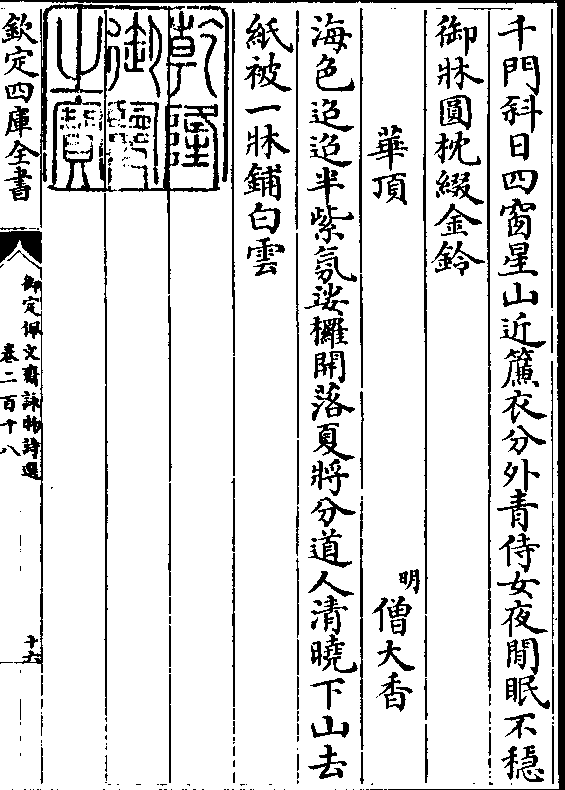 千門斜日四窗星山近簾衣分外青侍女夜閒眠不穩
御牀圓枕綴金鈴
華頂
明 僧大香
海色迢迢半紫氛娑欏開落夏將分道人清曉下山去
紙被一牀鋪白雲
乾隆
御覽
之寶
欽定四庫全書
御定佩文齋詠物詩選
卷二百十八
十六